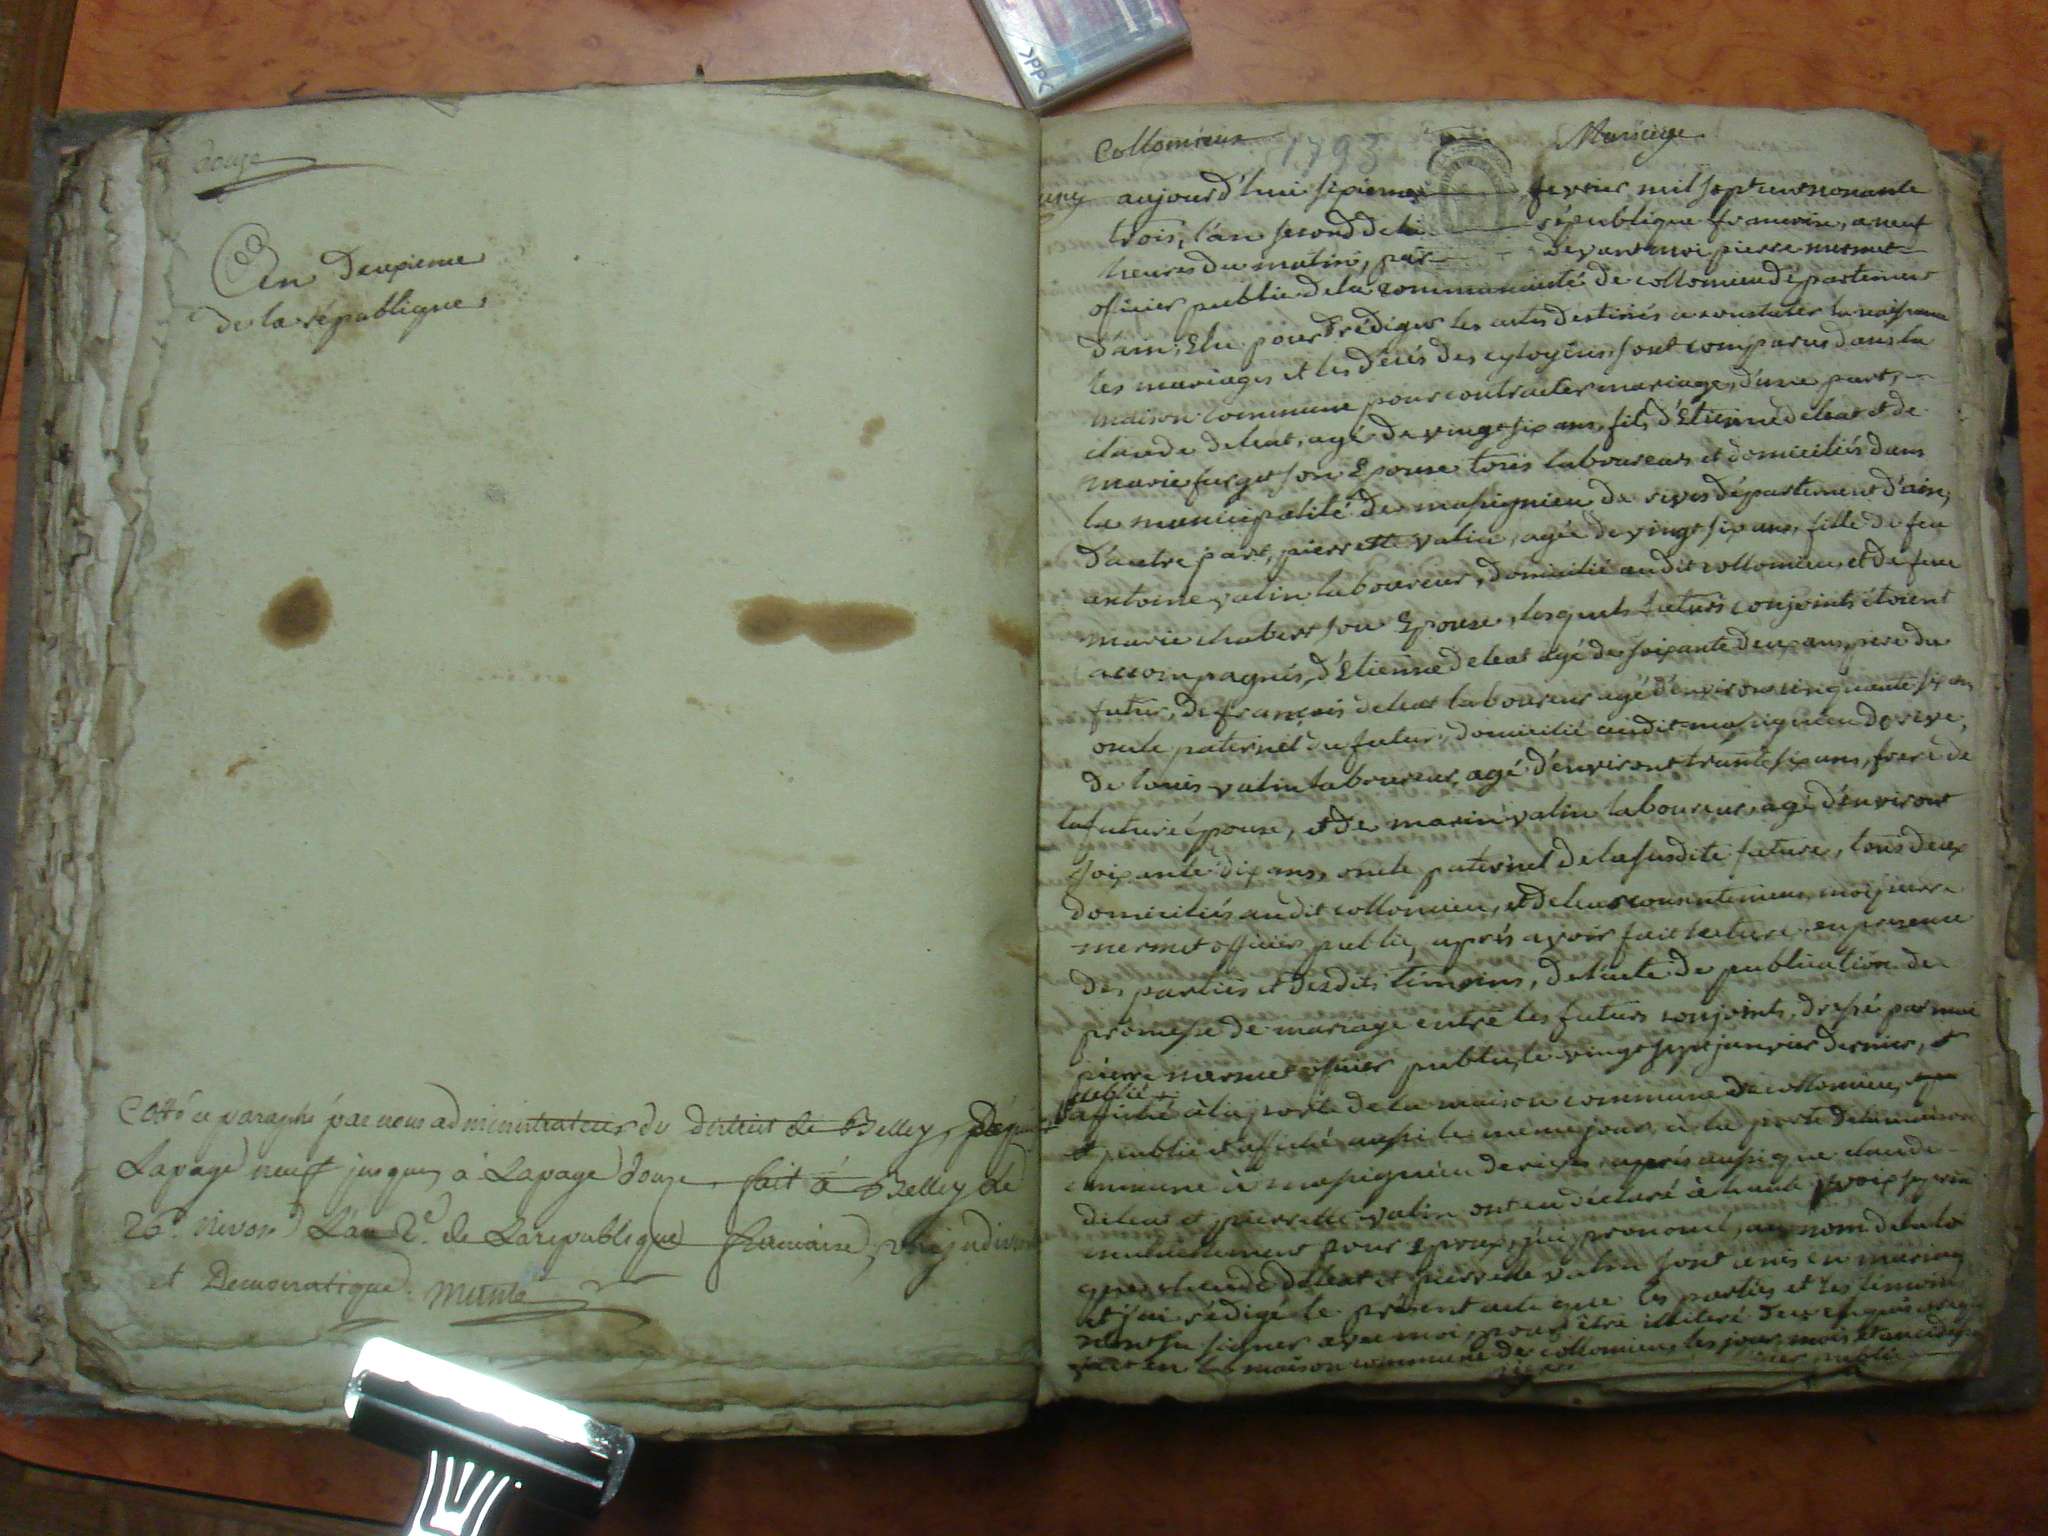 douze
l'an Deuxieme
de la république
Cotté et paraphé par nous administrateur du District de Belley, Depuis
La page neuf jusques à La page douze fait à Belley le
26e. nivose L'an 2e. de La republique francaise, une indivisible
et Democratique.
Collomieux 1793 Mariage
aujourd'hui sixieme fevrier mil sept cent nonante
trois, l'an second de la république francoise, a neuf
heures du matin, par devant moi pierre mermet
officier public de la communauté de collomieu département
d'ain, Elu pour rédiger les actes destinés a constater la naissance
les mariages et les décés des cytoyens, sont comparus dans la
maison commune pour contracter mariage, d'une part,
claude deleat, agé de vingt six ans, fils d'Etienne deleat et de
marie furget son Epouse tous laboureurs et domiciliés dans
la municipalité de massignieu de rives département d'ain,
d'autre part, pierrette valin, agée de vingt six ans, fille de feu
antoine valin laboureur, domicilié audit collomieu, et de feue
marie chabert son Epouse, lesquels futurs conjoints étoient
accompagnés, d'Etienne deleat agé de soixante deux ans, pere du
futur, de françois deleat laboureur agé d'environ cinquante six ans
oncle paternel du futur, domicilié audit massignieu de rive,
de louis valin laboureur, agé d'environt trante six ans, frere de
la future épouse, et de marin valin laboureur agé d'environt
soixante dix ans, oncle paternel de la susdite future, tous deux
domiciliés audit collomieu, et de leur consentement, moi pierre
mermet officier public, aprés avoir fait lecture en presence
des parties et desdits témoins, de l'acte de publication de
promesse de mariage entre les futurs conjoints, dressé par moi
pierre mermet officier public, le vingt sept janvier dernier, et
publié
affiché à la porte de la maison commune de collomieu,
et publié et affiché aussi le même jour, à la porte de la maison
commune à massignieu de rives, aprés aussi que claude
deleat et pierrette valin ont eu déclaré à haute voix se prendre
mutuellement pour Epoux, j'ai prononcé, au nom de la loi
que claude deleat et pierrette valin sont unis en mariage
et j'ai rédigé le présent acte que les parties et les témoins
n'ont su signer avec moi, pour être illiteré de ce enquis
fait en la maison commune de collomieu, les jour, mois et an